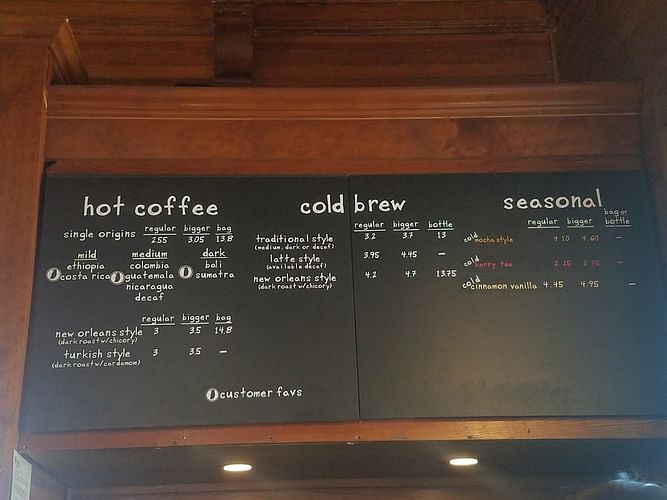 hot coffee
regular bigger bag
single origins 255 3.05 13.8
mild medium dark
ethiopia colombia bali
costa rica guatemala sumatra
nicaragua
decaf
regular bigger bag
new orleans style 3 3.5 14.8
(dark roast w/chicory)
turkish style 3 3.5 —
(dark roast w/cardamom)
customer favs
cold brew
regular bigger bottle
traditional style 3.2 3.7 13
(medium, dark or decaf)
latte style 3.95 4.45 —
(available decaf)
new orleans style 4.2 4.7 13.75
(dark roast w/chicory)
seasonal
regular bigger bag or bottle
cold mocha style 4.10 4.60 —
cold berry tea 2.25 2.75 —
cold cinnamon vanilla 4.45 4.95 —